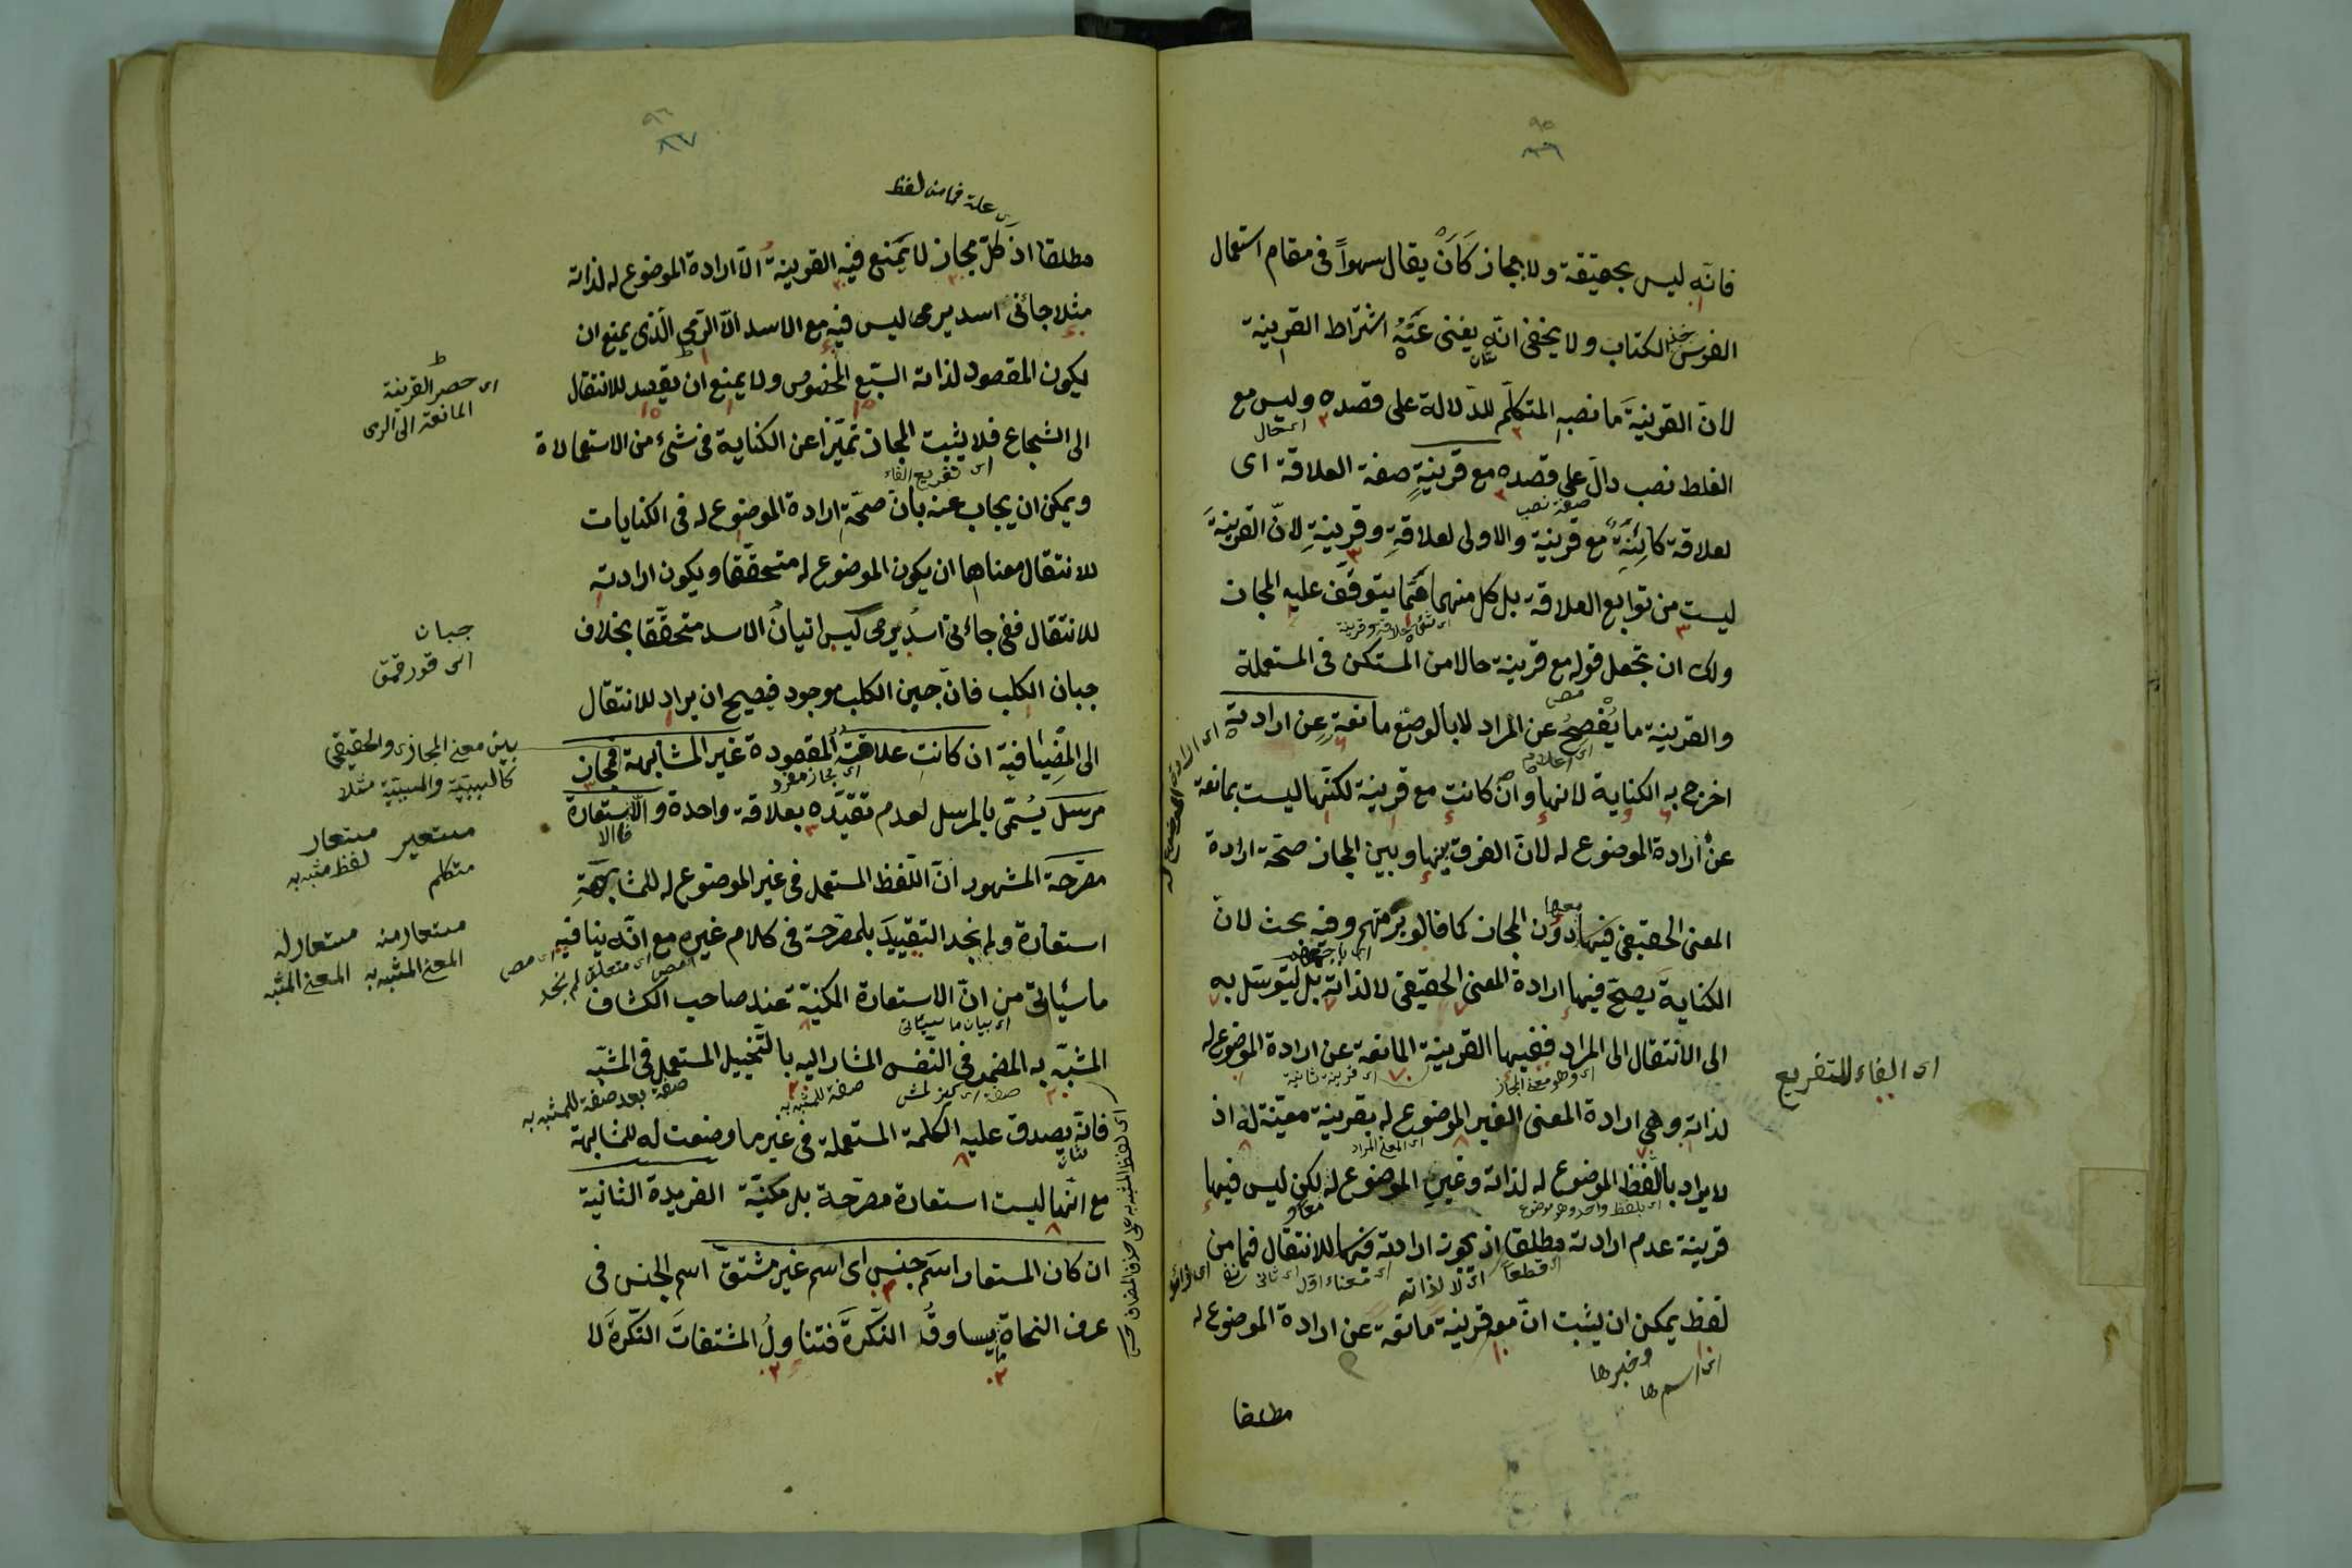 فانّه ليس بحقيقة ولا بمجاز كَاَنْ يقال سهواً فى مقام استعمال
الفرس خذ الكتاب ولا يخفى انّه يغنى عَنْهُ اشتراط القرينة
لانّ القرينةَ ما نصبه المتكلّم للدّلالة على قصده وليس مع
الغلط نصب دالّ على قصده مع قرينةٍ صفة العلاقة اى
لعلاقة كائِنَةٍ مع قرينة والاولى لعلاقةٍ وقرينةٍ لانّ القرينةَ
ليست من توابع العلاقة بل كل منهما ممّا يتوقّف عليه المجاز
ولك ان تجعل قوله مع قرينة حالا من المستكن فى المستعملة
والقرينة ما يُفصِحُ عن المراد لا بالوضع مانعةٍ عن ارادته
اخرج به الكناية لانها وان كانت مع قرينة لكنّها ليست بمانعة
عن ارادة الموضوع له لانّ الفرق بينها وبين المجاز صحّة ارادة
المعنى الحقيقى فيها دون المجاز كما قالو برمتهم وفيه بحث لانّ
الكنايةَ يصحّ فيها ارادة المعنى الحقيقى لا لذاته بل ليتوسّل به
الى الانتقال الى المراد ففيها القرينة المانعة عن ارادة الموضوع له
لذاته وهى ارادة المعنى الغير الموضوع له بقرينة معيّنة له اذ
لا يراد بالفظ الموضوع له لذاته وغير الموضوع له لكن ليس فيها
قرينة عدم ارادته مطلقا اذ يجوز ارادته فيها للانتقال فما من
لفظ يمكن ان يثبت انّ معه قرينة مانعة عن ارادة الموضوع له
اى اسمها وخبرها
مطلقا
اى الفاء للتفريع
اى علة فما من لفظ
مطلقا اذ كلّ مجاز لا يَمنع فيه القرينةُ الّا ارادة الموضوع له لذاته
مثلا جائنى اسد يرمى ليس فيه مع الاسد الّا الرّمى الّذى يمنع ان
يكون المقصود لذاته السّبع المخصوص ولا يمنع ان يقصد للانتقال
الى الشجاع فلا يثبت المجاز تميّزا عن الكناية فى شىء من الاستعمالاة
اى تفريع الفاء
ويمكن ان يجاب عنه بانّ صحّة ارادة الموضوع له فى الكنايات
للانتقال معناها ان يكون الموضوع له متحقّقا ويكون ارادته
للانتقال ففى جائنى اسدٌ يرمى ليس اتيانُ الاسد متحقّقا بخلاف
جبان الكلب فانّ جبن الكلب موجود فيصح ان يراد للانتقال
الى المضيافية ان كانت علاقتُه المقصودة غير المشابهة فمجاز
اى مجاز مفرد
مرسَل يُسمّى بالمرسل لعدم تقيّده بعلاقة واحدة والا فاستعارة
مصَرّحة المشهور انّ اللّفظ المستعمل فى غير الموضوع له للمشابهةِ
استعارة ولم نجد التقييدَ بلمصرّحة فى كلام غيره مع انّه ينافيه
ما سَيأتى من انّ الاستعارة المكنيّة عند صاحب الكشاف
اى بيان ما سيأتى
المشبّه به المضمر فى النّفس المشار اليه بالتّخييل المستعمل فى المشبّه
صفة بعد صفة للمشبه به
فانّه يصدق عليه الكلمة المستعملة فى غير ما وضعت له للمشابهة
مع انّها ليست استعارة مصرّحة بل مكنيّة الفريدة الثانية
ان كان المستعار اسَم جنس اى اسم غير مشتقّ اسم الجنس فى
عرف النحاة يساوقُ النّكرةَ فتناولُ المشتقاتَ النّكرةَ لا
اى حصر القرينة
المانعة الى الرمى
جبان
اى قورقمق
بين معنى المجازى والحقيقى
كالسببيّة والمسببيّة مثلا
مستعير مستعار
متكلم لفظ مشبه به
مستعار منه مستعار له
المعنى المشبه به المعنى المشبه